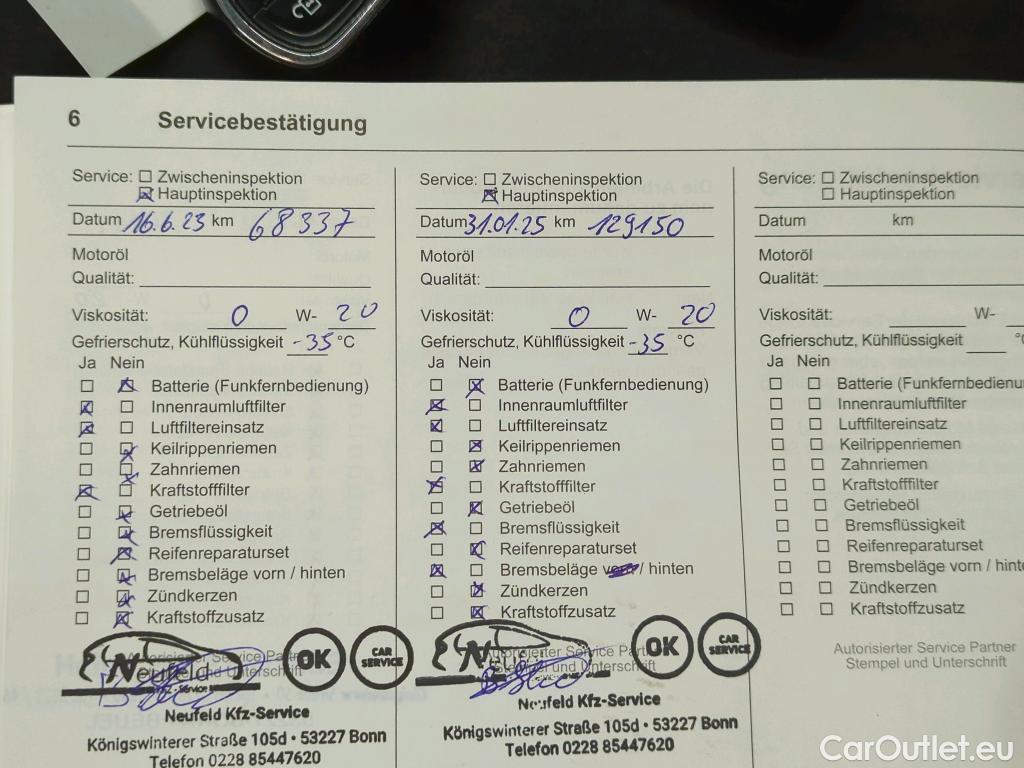 6 Servicebestätigung
Service: Zwischeninspektion
Hauptinspektion
Datum 16.6.23 km 68337
Motoröl
Qualität:
Viskosität: 0 W- 20
Gefrierschutz, Kühlflüssigkeit -35 °C
Ja Nein
Batterie (Funkfernbedienung)
Innenraumluftfilter
Luftfiltereinsatz
Keilrippenriemen
Zahnriemen
Kraftstofffilter
Getriebeöl
Bremsflüssigkeit
Reifenreparaturset
Bremsbeläge vorn / hinten
Zündkerzen
Kraftstoffzusatz
Autorisierter Service Partner
Stempel und Unterschrift
OK
CAR SERVICE
Neufeld Kfz-Service
Königswinterer Straße 105d • 53227 Bonn
Telefon 0228 85447620
Service: Zwischeninspektion
Hauptinspektion
Datum 31.01.25 km 129150
Motoröl
Qualität:
Viskosität: 0 W- 20
Gefrierschutz, Kühlflüssigkeit -35 °C
Ja Nein
Batterie (Funkfernbedienung)
Innenraumluftfilter
Luftfiltereinsatz
Keilrippenriemen
Zahnriemen
Kraftstofffilter
Getriebeöl
Bremsflüssigkeit
Reifenreparaturset
Bremsbeläge vorn / hinten
Zündkerzen
Kraftstoffzusatz
Autorisierter Service Partner
Stempel und Unterschrift
OK
CAR SERVICE
Neufeld Kfz-Service
Königswinterer Straße 105d • 53227 Bonn
Telefon 0228 85447620
Service: Zwischeninspektion
Hauptinspektion
Datum km
Motoröl
Qualität:
Viskosität: W-
Gefrierschutz, Kühlflüssigkeit °C
Ja Nein
Batterie (Funkfernbedienu
Innenraumluftfilter
Luftfiltereinsatz
Keilrippenriemen
Zahnriemen
Kraftstofffilter
Getriebeöl
Bremsflüssigkeit
Reifenreparaturset
Bremsbeläge vorn / hinte
Zündkerzen
Kraftstoffzusatz
Autorisierter Service Partner
Stempel und Unterschrift
CarOutlet.eu